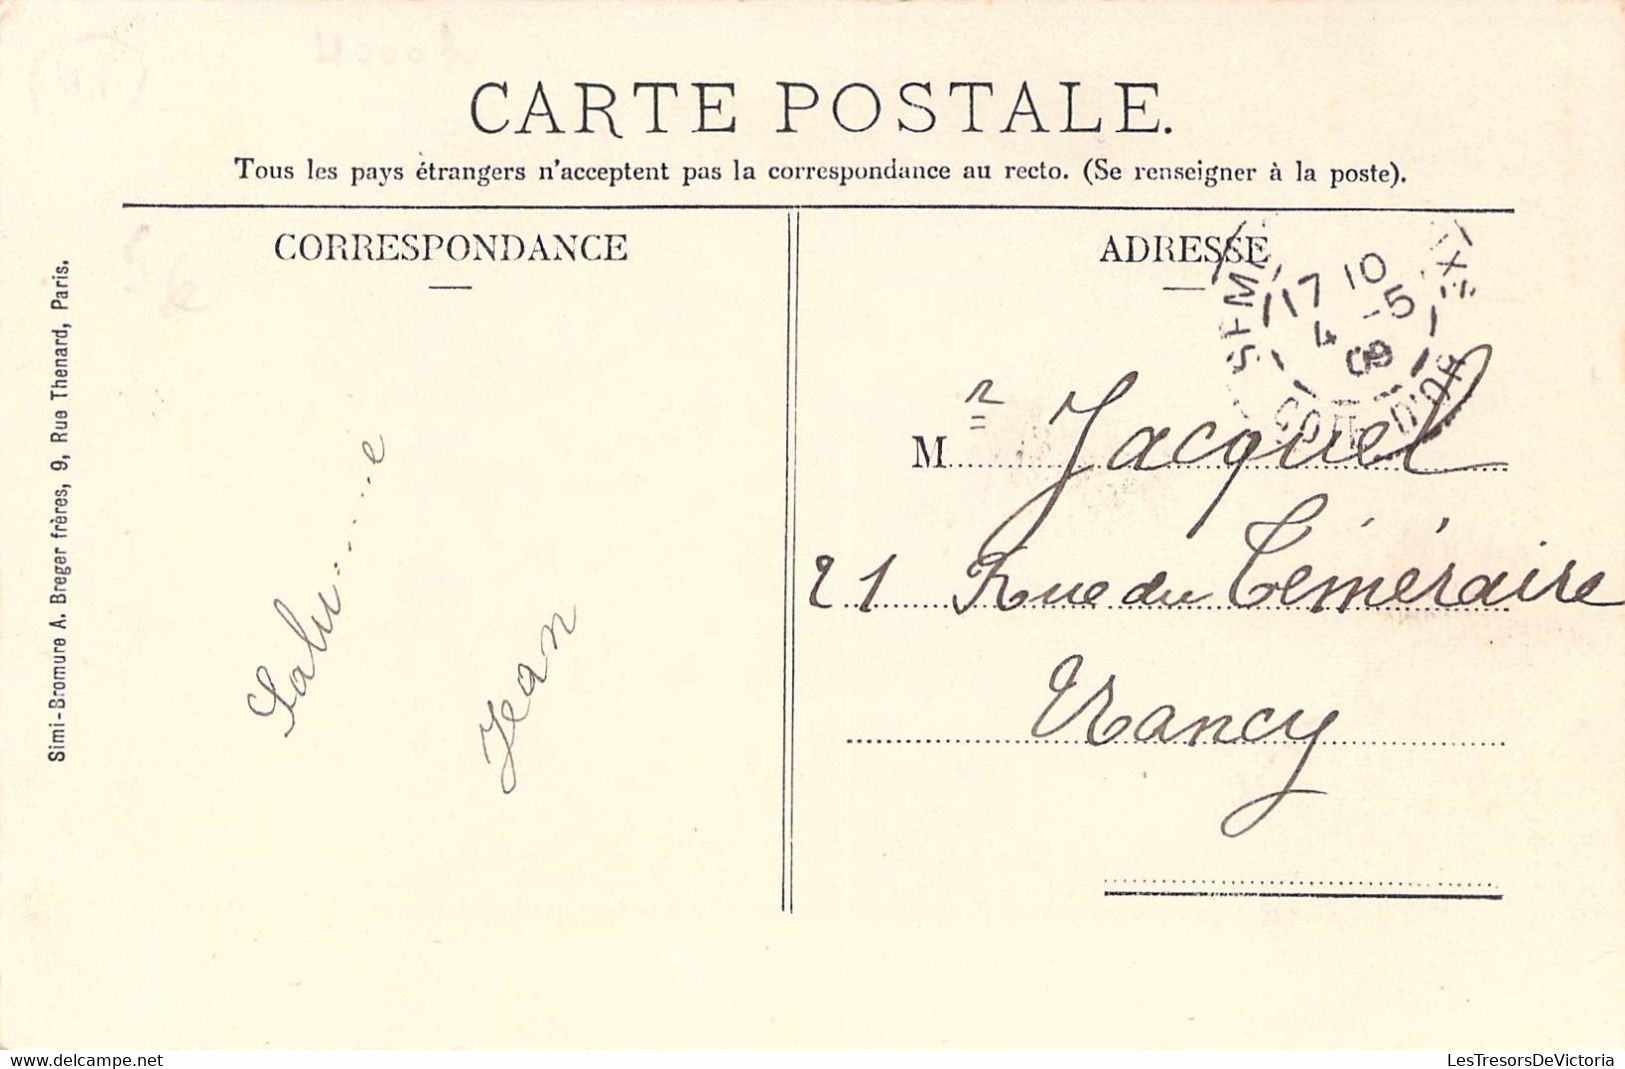 CARTE POSTALE.
Tous les pays étrangers n'acceptent pas la correspondance au recto. (Se renseigner à la poste).
CORRESPONDANCE
ADRESSE
17 10
4 -5
08
CÔTE D'OR
Mr Jacquel
21 Rue du Téméraire
Nancy
Salu......e
Jean
Simi-Bromure A. Breger frères, 9, Rue Thenard, Paris.
www.delcampe.net
LesTresorsDeVictoria